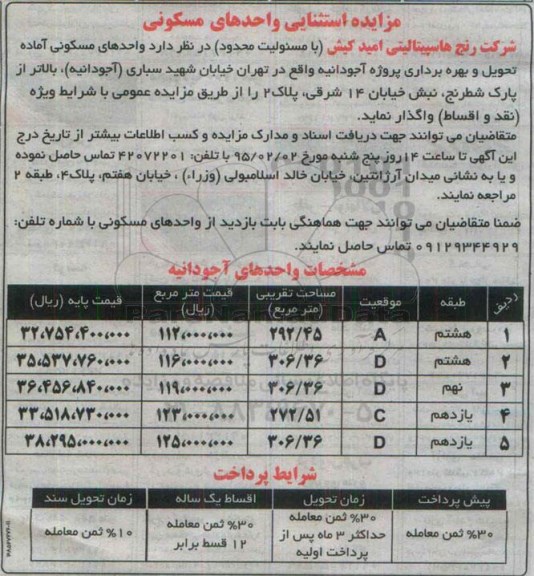 مزایده استثنایی واحدهای مسکونی
شرکت رنج هاسپیتالیتی امید کیش (با مسئولیت محدود) در نظر دارد واحدهای مسکونی آماده
تحویل و بهره برداری پروژه آجودانیه واقع در تهران خیابان شهید سباری (آجودانیه)، بالاتر از
پارک شطرنج، نبش خیابان ۱۴ شرقی، پلاک۲ را از طریق مزایده عمومی با شرایط ویژه
(نقد و اقساط) واگذار نماید.
متقاضیان می توانند جهت دریافت اسناد و مدارک مزایده و کسب اطلاعات بیشتر از تاریخ درج
این آگهی تا ساعت ۱۴ روز پنج شنبه مورخ ۹۵/۰۲/۰۲ با تلفن: ۴۲۰۷۲۲۰۱ تماس حاصل نموده
و یا به نشانی میدان آرژانتین، خیابان خالد اسلامبولی (وزراء) ، خیابان هفتم، پلاک۴، طبقه ۲
مراجعه نمایند.
ضمنا متقاضیان می توانند جهت هماهنگی بابت بازدید از واحدهای مسکونی با شماره تلفن:
۰۹۱۲۹۳۴۴۹۲۹ تماس حاصل نمایند.
مشخصات واحدهای آجودانیه
ردیف طبقه موقعیت مساحت تقریبی (متر مربع) قیمت متر مربع (ریال) قیمت پایه (ریال)
۱ هشتم A ۲۹۲/۴۵ ۱۱۲،۰۰۰،۰۰۰ ۳۲،۷۵۴،۴۰۰،۰۰۰
۲ هشتم D ۳۰۶/۳۶ ۱۱۶،۰۰۰،۰۰۰ ۳۵،۵۳۷،۷۶۰،۰۰۰
۳ نهم D ۳۰۶/۳۶ ۱۱۹،۰۰۰،۰۰۰ ۳۶،۴۵۶،۸۴۰،۰۰۰
۴ یازدهم C ۲۷۲/۵۱ ۱۲۳،۰۰۰،۰۰۰ ۳۳،۵۱۸،۷۳۰،۰۰۰
۵ یازدهم D ۳۰۶/۳۶ ۱۲۵،۰۰۰،۰۰۰ ۳۸،۲۹۵،۰۰۰،۰۰۰
شرایط پرداخت
پیش پرداخت زمان تحویل اقساط یک ساله زمان تحویل سند
۳۰% ثمن معامله ۳۰% ثمن معامله حداکثر ۳ ماه پس از پرداخت اولیه ۳۰% ثمن معامله ۱۲ قسط برابر ۱۰% ثمن معامله